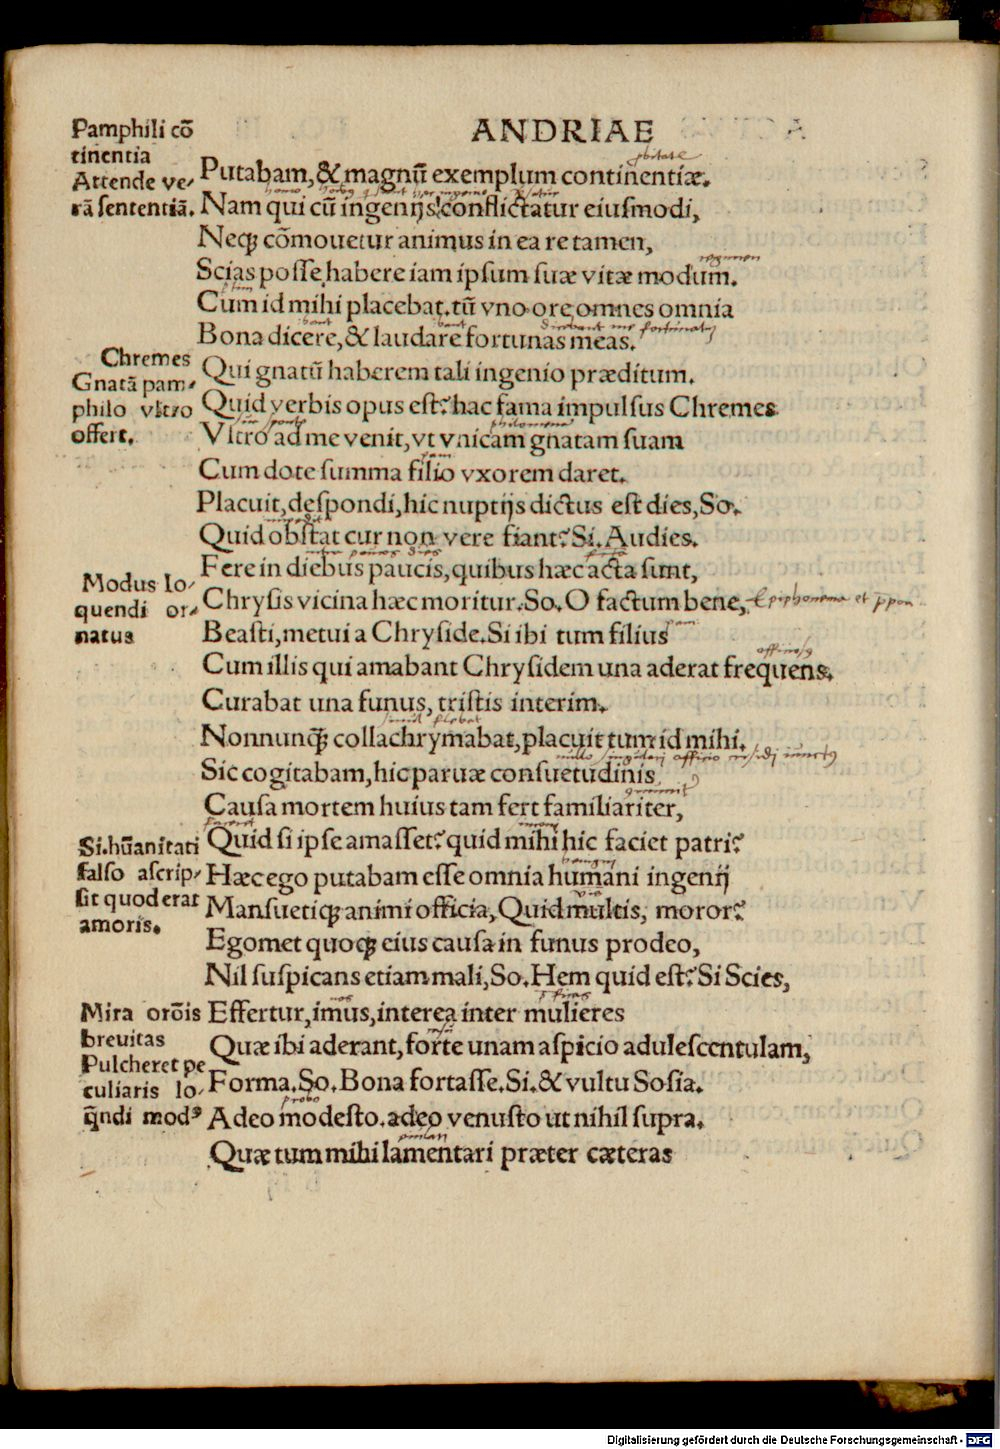 ANDRIAE
Pamphili cō
tinentia
Attende ve-
rā sententiā.
Putabam, & magnū exemplum continentiæ.
Nam qui cū ingenijs conflictatur eiusmodi,
Neqꝫ cōmouetur animus in ea re tamen,
Scias posse habere iam ipsum suæ vitæ modum.
Cum id mihi placebat. tū vno ore omnes omnia
Bona dicere, & laudare fortunas meas.
Chremes
Gnatā pam-
philo vltro
offert.
Qui gnatū haberem tali ingenio præditum.
Quid verbis opus est? hac fama impulsus Chremes
Vltro ad me venit, vt vnicam gnatam suam
Cum dote summa filio vxorem daret.
Placuit, despondi, hic nuptijs dictus est dies, So.
Quid obstat cur non vere fiant? Si. Audies.
Fere in diebus paucis, quibus hæc acta sunt,
Modus lo-
quendi or-
natus
Chrysis vicina hæc moritur. So. O factum bene,
Beasti, metui a Chryside. Si ibi tum filius
Cum illis qui amabant Chrysidem una aderat frequens.
Curabat una funus, tristis interim.
Nonnunqꝫ collachrymabat, placuit tum id mihi.
Sic cogitabam, hic paruæ consuetudinis
Causa mortem huius tam fert familiariter,
Si. hūanitati
falso ascrip-
sit quod erat
amoris.
Quid si ipse amasset? quid mihi hic faciet patri?
Hæc ego putabam esse omnia humani ingenij
Mansuetiqꝫ animi officia, Quid multis, moror?
Egomet quoqꝫ eius causa in funus prodeo,
Nil suspicans etiam mali, So. Hem quid est? Si Scies,
Mira orōis
breuitas
Pulcher et pe
culiaris lo-
q̄ndi modꝰ
Effertur, imus, interea inter mulieres
Quæ ibi aderant, forte unam aspicio adulescentulam,
Forma. So. Bona fortasse. Si. & vultu Sosia.
Adeo modesto. adeo venusto ut nihil supra.
Quæ tum mihi lamentari præter cæteras
Digitalisierung gefördert durch die Deutsche Forschungsgemeinschaft - DFG